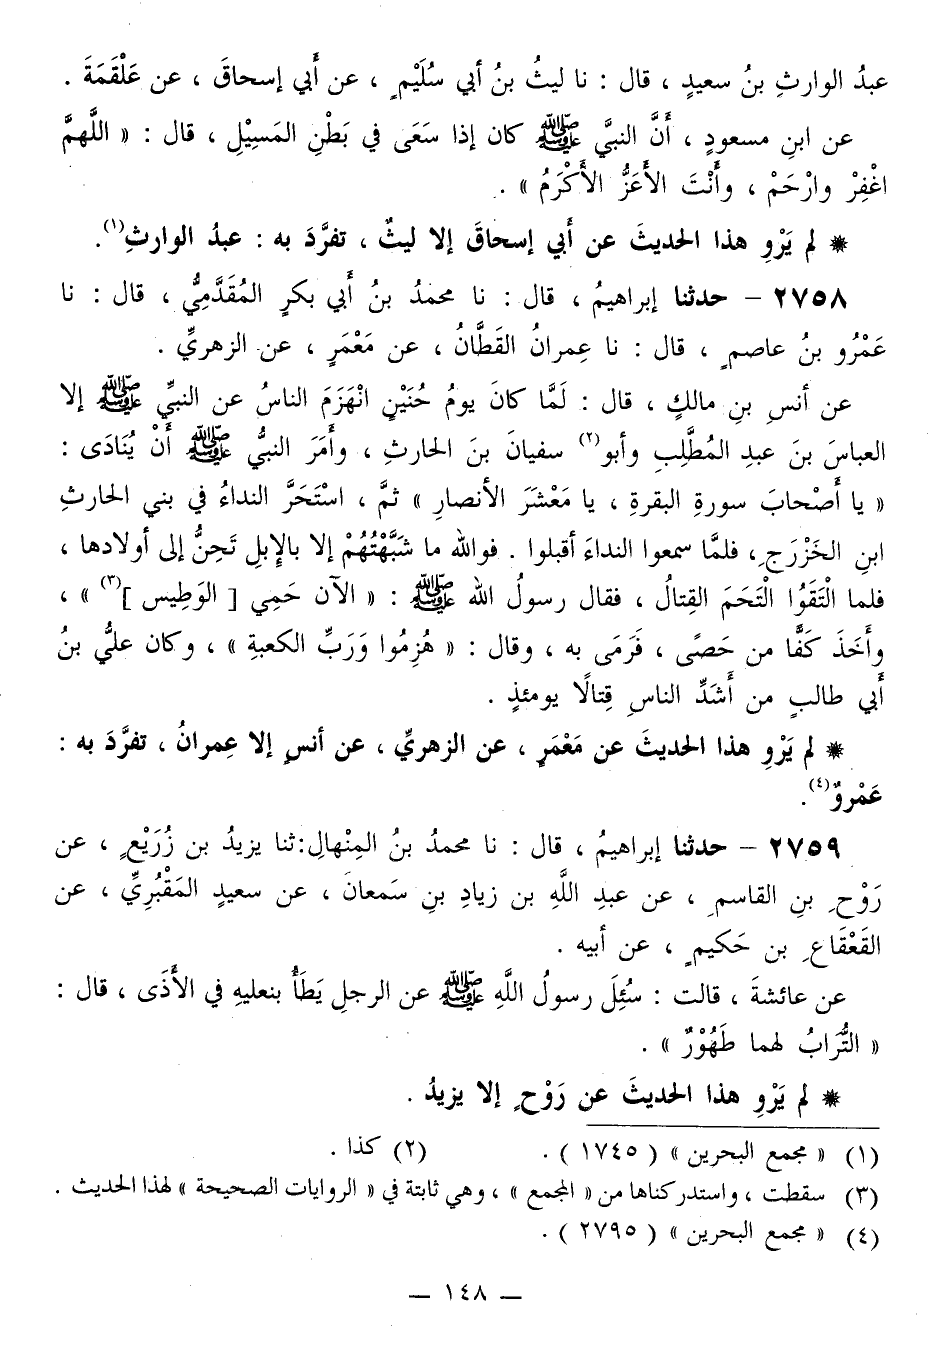 عبدُ الوارثِ بنُ سعيدٍ ، قال : نا ليثُ بنُ أبي سُلَيْمٍ ، عن أَبي إسحاقَ ، عن عَلْقَمَةَ .
عن ابنِ مسعودٍ ، أَنَّ النبيَّ ﷺ كان إذا سَعَى في بَطْنِ المَسِيْلِ ، قال : « اللَّهمَّ
اغْفِرْ وارْحَمْ ، وأَنْتَ الأَعَزُّ الأَكْرَمُ » .
* لم يَرْوِ هذا الحديثَ عن أَبي إسحاقَ إلا ليثٌ ، تفرَّدَ به : عبدُ الوارثِ(١).
٢٧٥٨ – حدثنا إبراهيمُ ، قال : نا محمدُ بنُ أَبي بكرٍ المُقَدَّمِيُّ ، قال : نا
عَمْرُو بنُ عاصمٍ ، قال : نا عِمرانُ القَطَّانُ ، عن مَعْمَرٍ ، عن الزهريِّ .
عن أنسِ بنِ مالكٍ ، قال : لَمَّا كانَ يومُ حُنَيْنٍ انْهَزَمَ الناسُ عن النبيِّ ﷺ إلا
العباسَ بنَ عبدِ المُطَّلِبِ وأبو(٢) سفيانَ بنَ الحارثِ ، وأَمَرَ النبيُّ ﷺ أَنْ يُنَادَى :
« يا أَصْحابَ سورةِ البقرةِ ، يا مَعْشَرَ الأنصارِ » ثمَّ ، اسْتَحَرَّ النداءُ في بني الحارثِ
ابنِ الخَزْرَجِ ، فلمَّا سمعوا النداءَ أقبلوا . فوالله ما شَبَّهْتُهُمْ إلا بالإبلِ تَحِنُّ إلى أولادها ،
فلما الْتَقَوُا الْتَحَمَ القِتالُ ، فقال رسولُ الله ﷺ : « الآن حَمِي [ الوَطِيس ](٣) » ،
وأَخَذَ كَفًّا من حَصًى ، فَرَمَى به ، وقال : « هُزِمُوا وَرَبِّ الكعبةِ » ، وكان عليُّ بنُ
أَبي طالبٍ من أَشَدِّ الناسِ قِتالًا يومئذٍ .
* لم يَرْوِ هذا الحديثَ عن مَعْمَرٍ ، عن الزهريِّ ، عن أنسٍ إلا عِمرانُ ، تفرَّدَ به :
عَمْروٌ(٤).
٢٧٥٩ – حدثنا إبراهيمُ ، قال : نا محمدُ بنُ المِنْهالِ:ثنا يزيدُ بن زُرَيْعٍ ، عن
رَوْحِ بنِ القاسمِ ، عن عبدِ اللَّهِ بن زيادِ بنِ سَمعانَ ، عن سعيدٍ المَقْبُرِيِّ ، عن
القَعْقَاعِ بن حَكيمٍ ، عن أبيه .
عن عائشةَ ، قالت : سُئِلَ رسولُ اللَّهِ ﷺ عن الرجلِ يَطَأُ بنعليهِ في الأَذَى ، قال :
« التُّرَابُ لهما طَهُوْرٌ » .
* لم يَرْوِ هذا الحديثَ عن رَوْحٍ إلا يزيدُ .
(١) « مجمع البحرين » ( ١٧٤٥ ) . (٢) كذا .
(٣) سقطت ، واستدركناها من « المجمع » ، وهي ثابتة في « الروايات الصحيحة » لهذا الحديث .
(٤) « مجمع البحرين » ( ٢٧٩٥ ) .
– ١٤٨ –